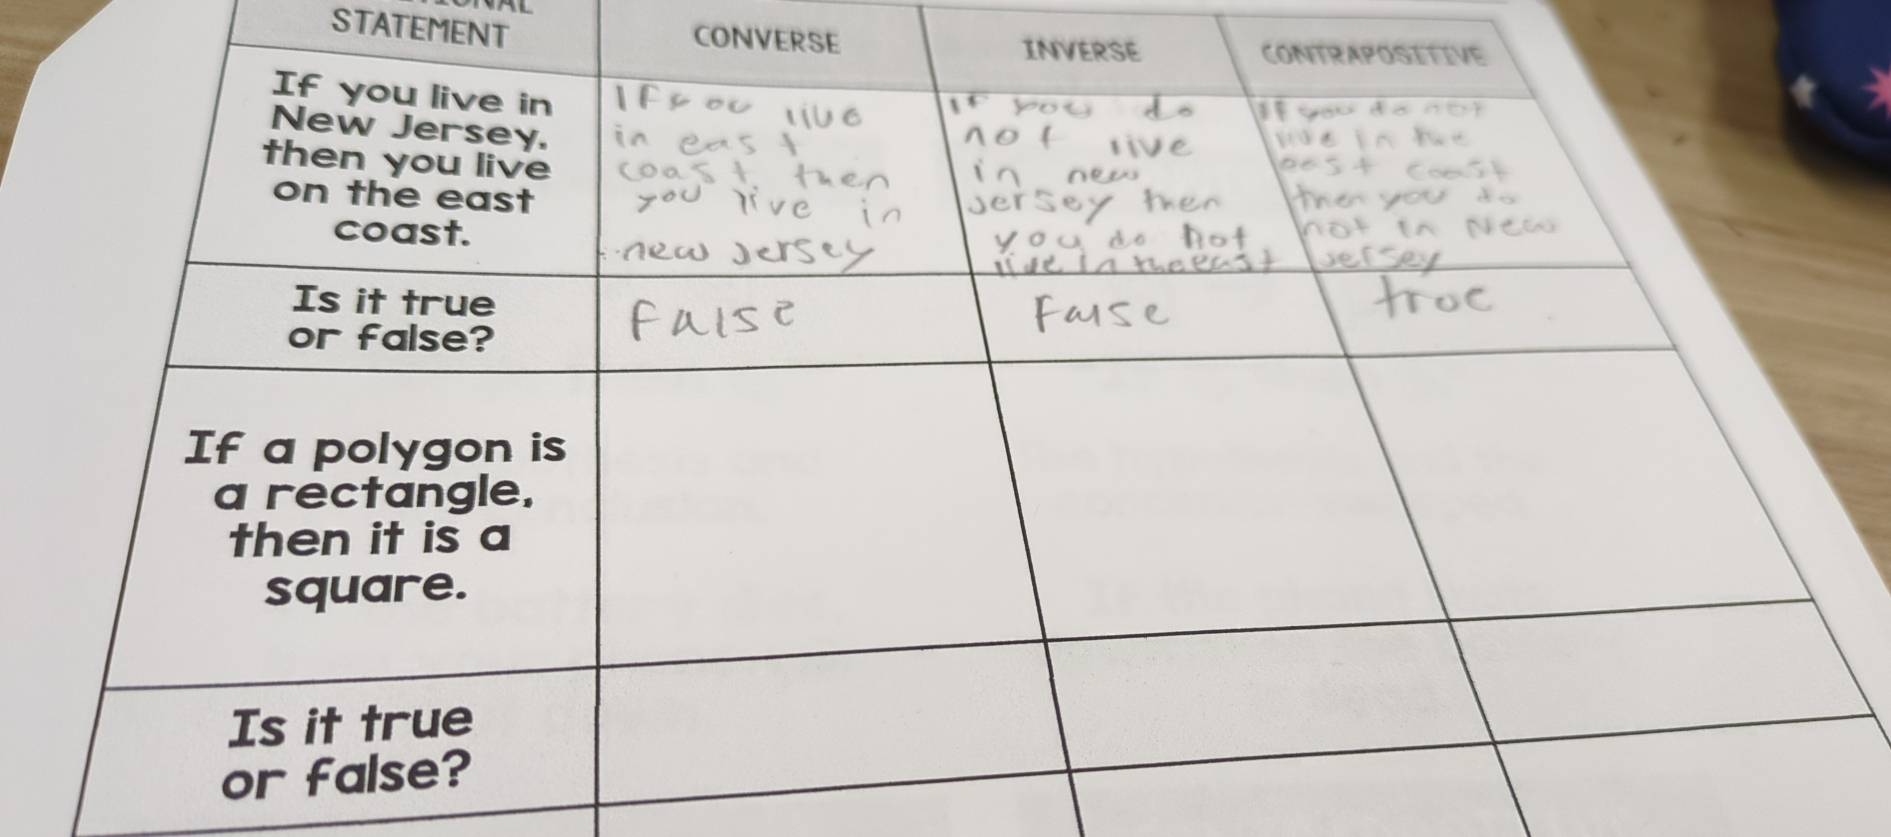 STATEMENT
CONVERSE
INVERSE
CONTRAPOSITIVE
If you live in
New Jersey,
then you live
on the east
coast.
If you live
in east
coast then
you live in
new jersey
if you do
not live
in new
jersey then
you do not
live in the east
If you do not
live in the
east coast
then you do
not in New
jersey
Is it true
or false?
False
False
true
If a polygon is
a rectangle,
then it is a
square.
Is it true
or false?